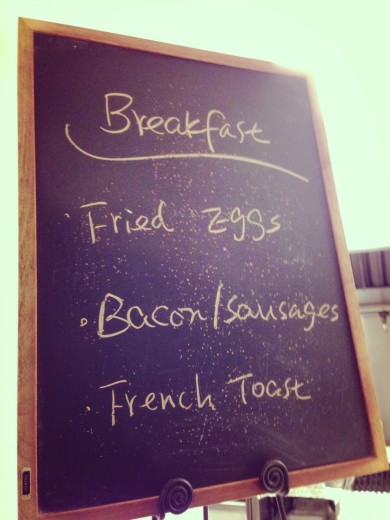 Breakfast
· Fried Eggs
· Bacon/Sausages
· French Toast